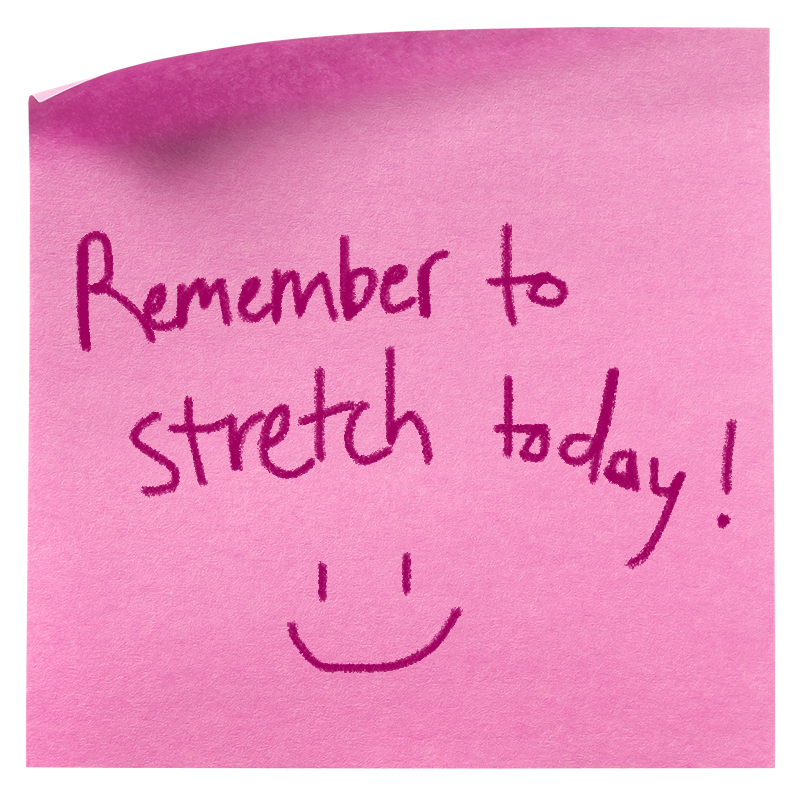 Remember to
stretch today!